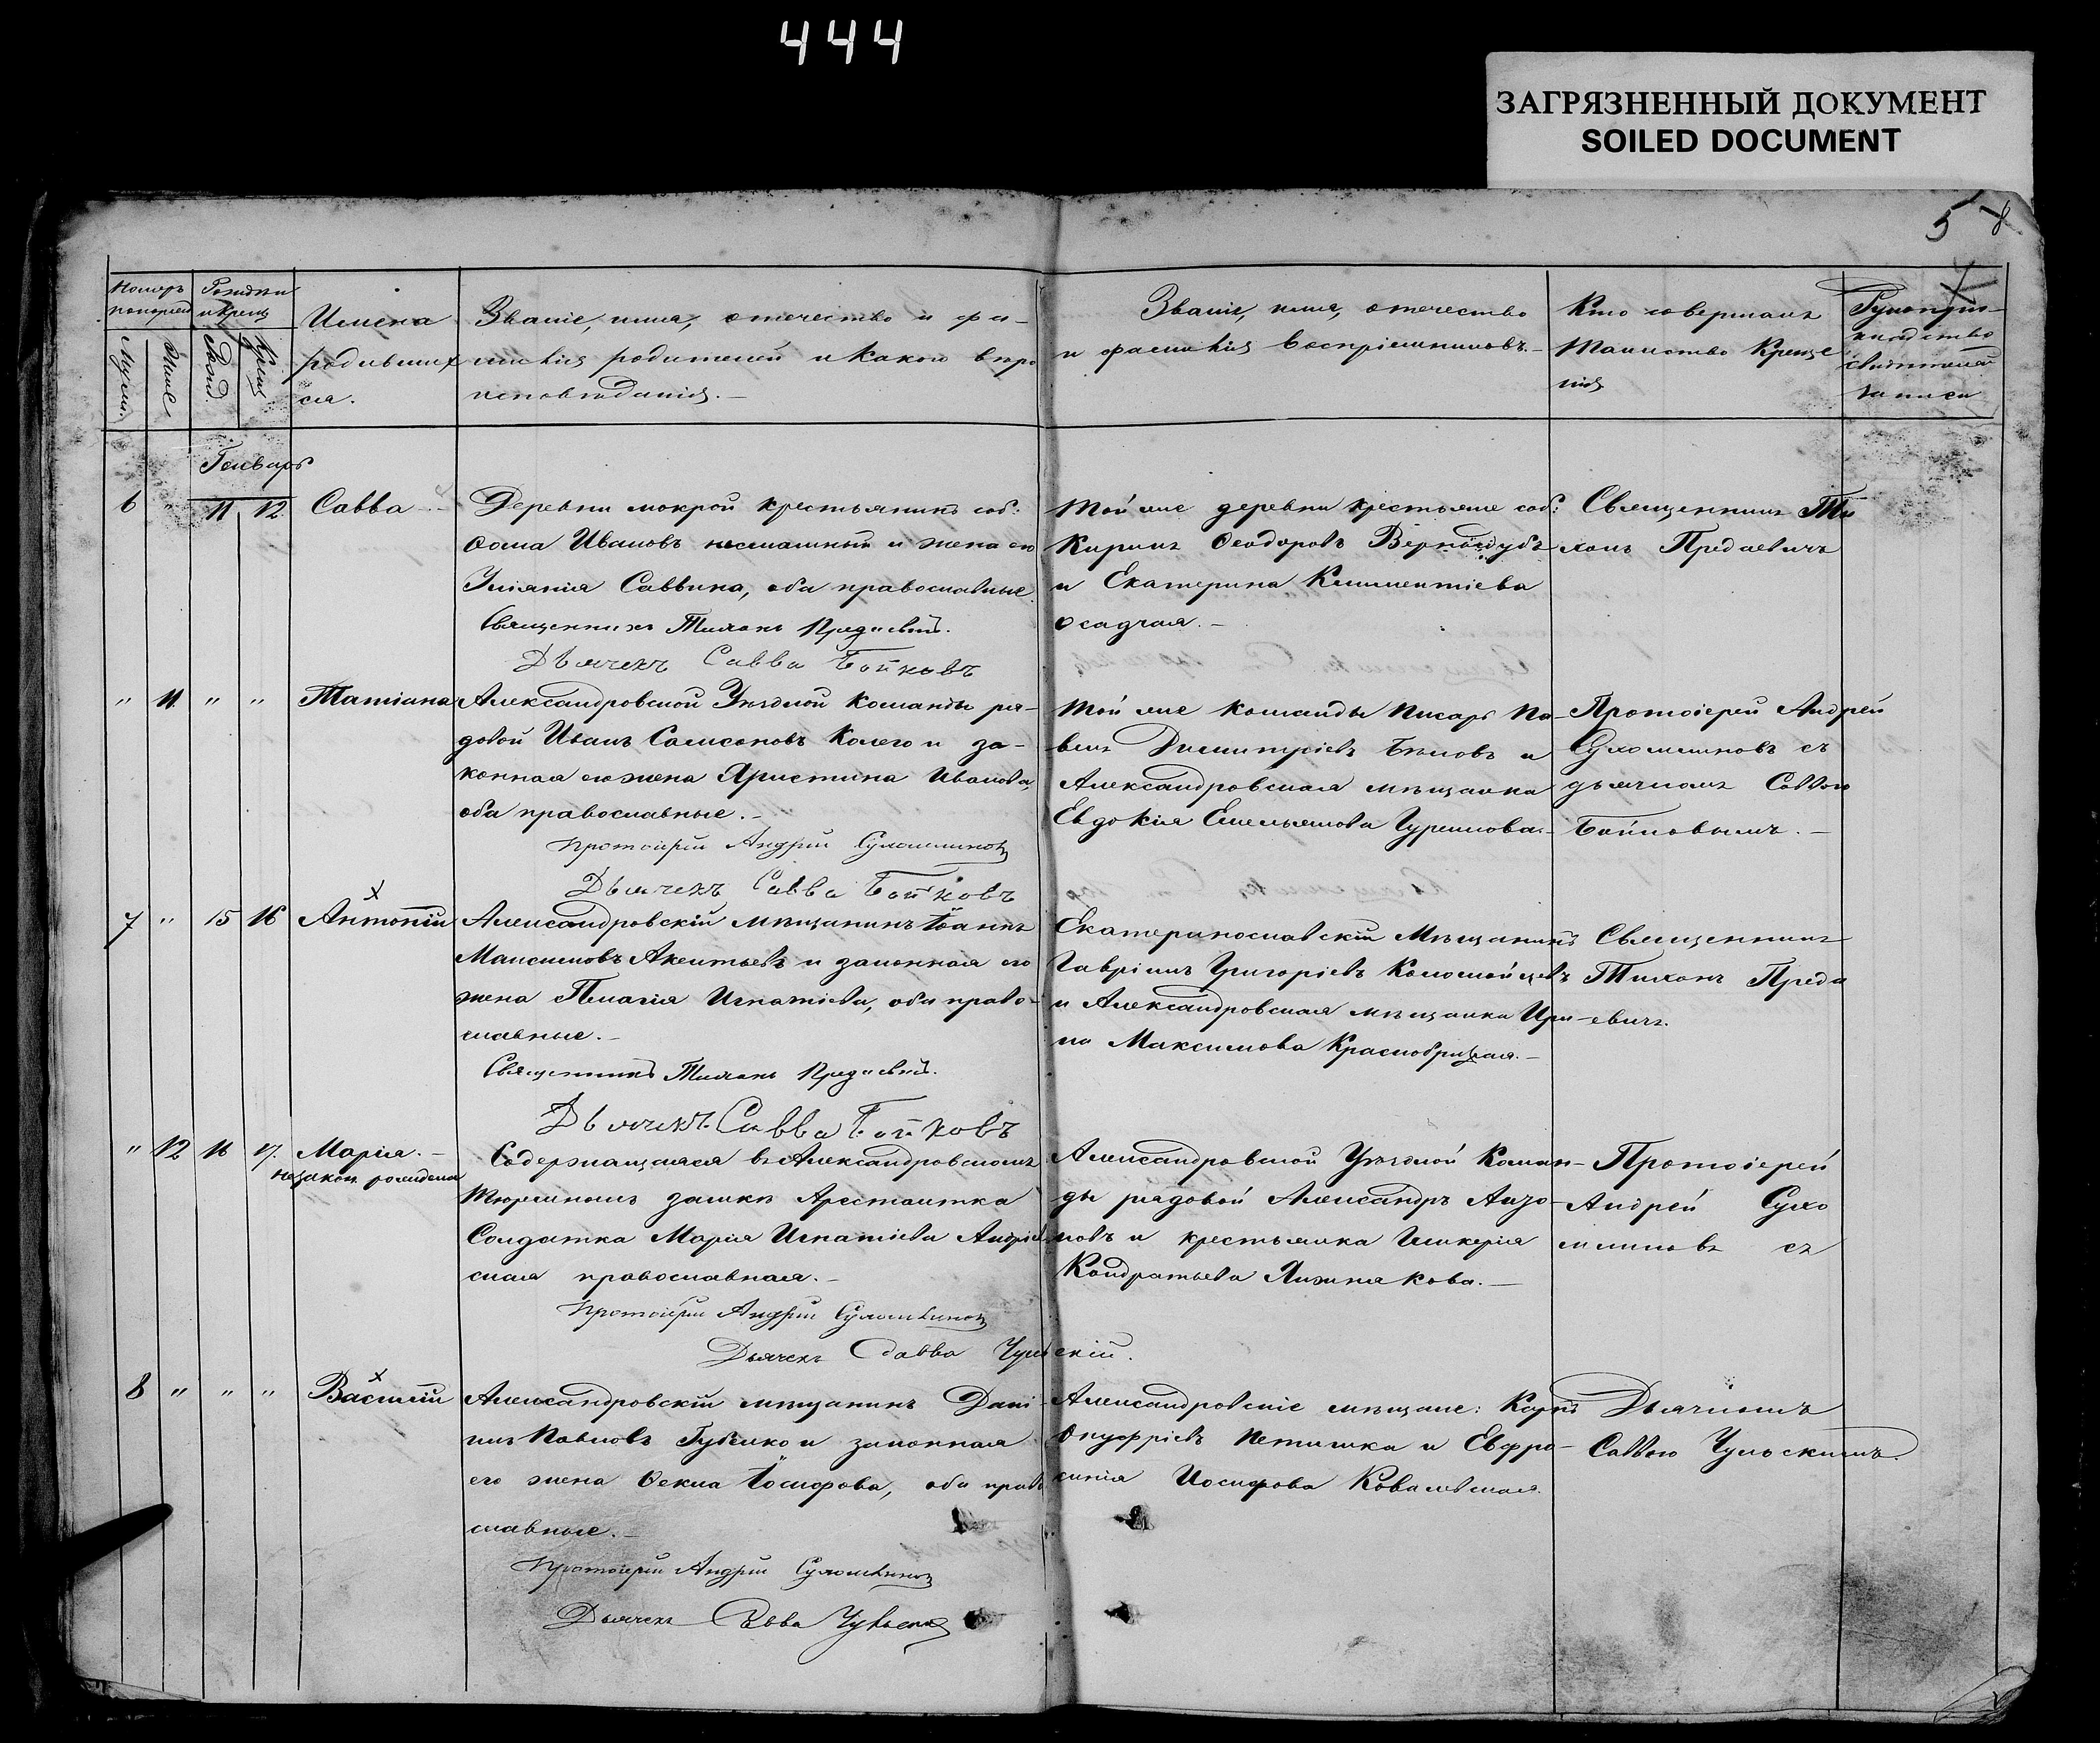 444
ЗАГРЯЗНЕННЫЙ ДОКУМЕНТ
SOILED DOCUMENT
5
Имена
родивших
ся.
Званіе, имя, отечество и фа-
милія родителей и какого вѣро
исповѣданія.-
Званіе, имя, отечество
и фамилія воспріемниковъ.-
Кто совершалъ
таинство Креще
нія
Рукопри-
кладство
свидѣтелей
записи
Генварь
6 " 11 12 Савва.-
Деревни мокрой крестьянинъ соб:
Ѳома Ивановъ и жена его
Уліянія Саввина, оба православные.
Священникъ Тихонъ Предаевичъ.
Дьячекъ Савва Бойковъ
Той же деревни крестьяне соб:
Кирилъ Ѳеодоровъ Вернидубъ
и Екатерина Климентіева
Осадчая.-
Священникъ Ти
хонъ Предаевичъ
" 11 " " Татіана
Александровской Уѣздной Команды ря-
довой Иванъ Самсоновъ и за-
конная его жена Христина Иванова,
оба православные.-
Протоіерей Андрей Сухомлиновъ
Дьячекъ Савва Бойковъ
Той же команды писарь Па-
велъ Димитріевъ Бѣловъ и
Александровская мѣщанка
Евдокія Емельянова
Протоіерей Андрей
Сухомлиновъ съ
дьячкомъ Саввою
Бойковымъ.-
7 " 15 16 Антоній
Александровскій мѣщанинъ Іоаннъ
Максимовъ Акентьевъ и законная его
жена Пелагія Игнатіева, оба право-
славные.-
Священникъ Тихонъ Предаевичъ.
Дьячекъ Савва Бойковъ
Екатеринославскій Мѣщанинъ
Гавріилъ Григоріевъ Коломойцевъ
и Александровская мѣщанка Ири-
на Максимова Краснобрицкая.-
Священникъ
Тихонъ Преда
евичъ.
" 12 16 17. Марія.-
незакон рожденна
Содержащаяся въ Александровскомъ
тюремномъ замкѣ Арестантка
Солдатка Марія Игнатіева Андріев
ская православная.-
Протоіерей Андрей Сухомлиновъ
Дьячекъ Савва Чульскій.
Александровской Уѣздной Коман-
ды рядовой Александръ Анто-
новъ и крестьянка Гликерія
Кондратьева
Протоіерей
Андрей Сухо
млиновъ съ
8 " " " Василій
Александровскій мѣщанинъ Дані-
илъ Павловъ Губенко и законная
его жена Ѳекла Іосифова, оба право
славные.-
Протоіерей Андрей Сухомлиновъ
Дьячекъ Савва Чульскій
Александровскіе мѣщане: Карпъ
Онуфріевъ и Евфро-
синія Иосифова Ковалевская.
Дьячкомъ
Саввою Чульскимъ.